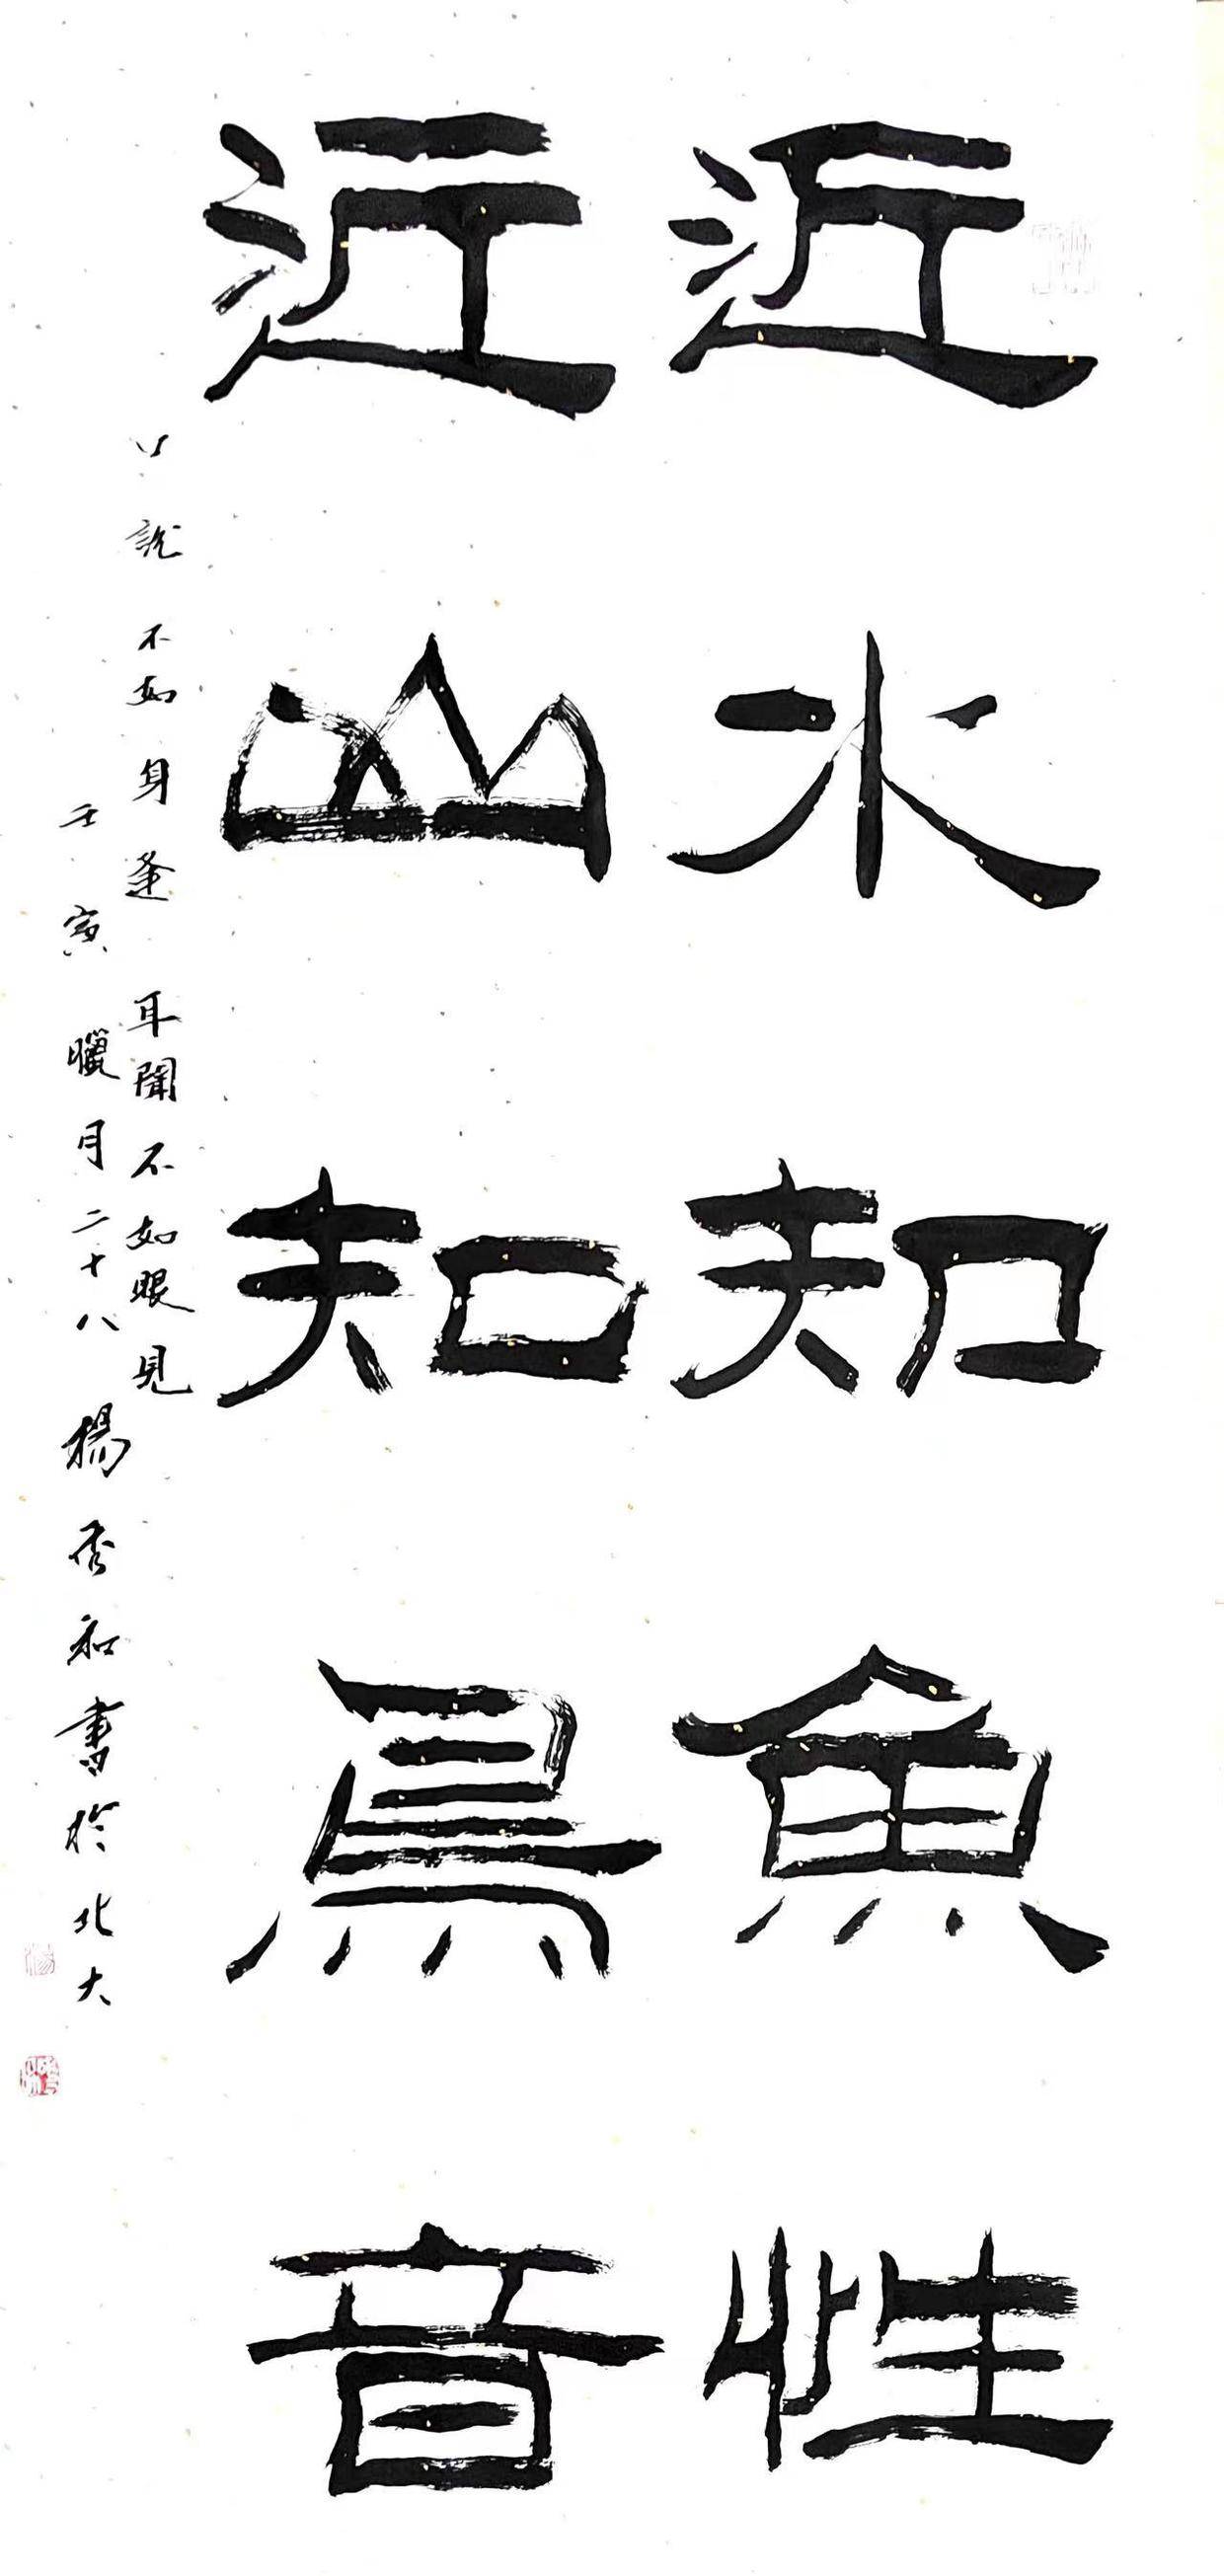 近水知魚性
近山知鳥音
口説不如身逢耳聞不如眼見
壬寅臘月二十八楊秀和書於北大